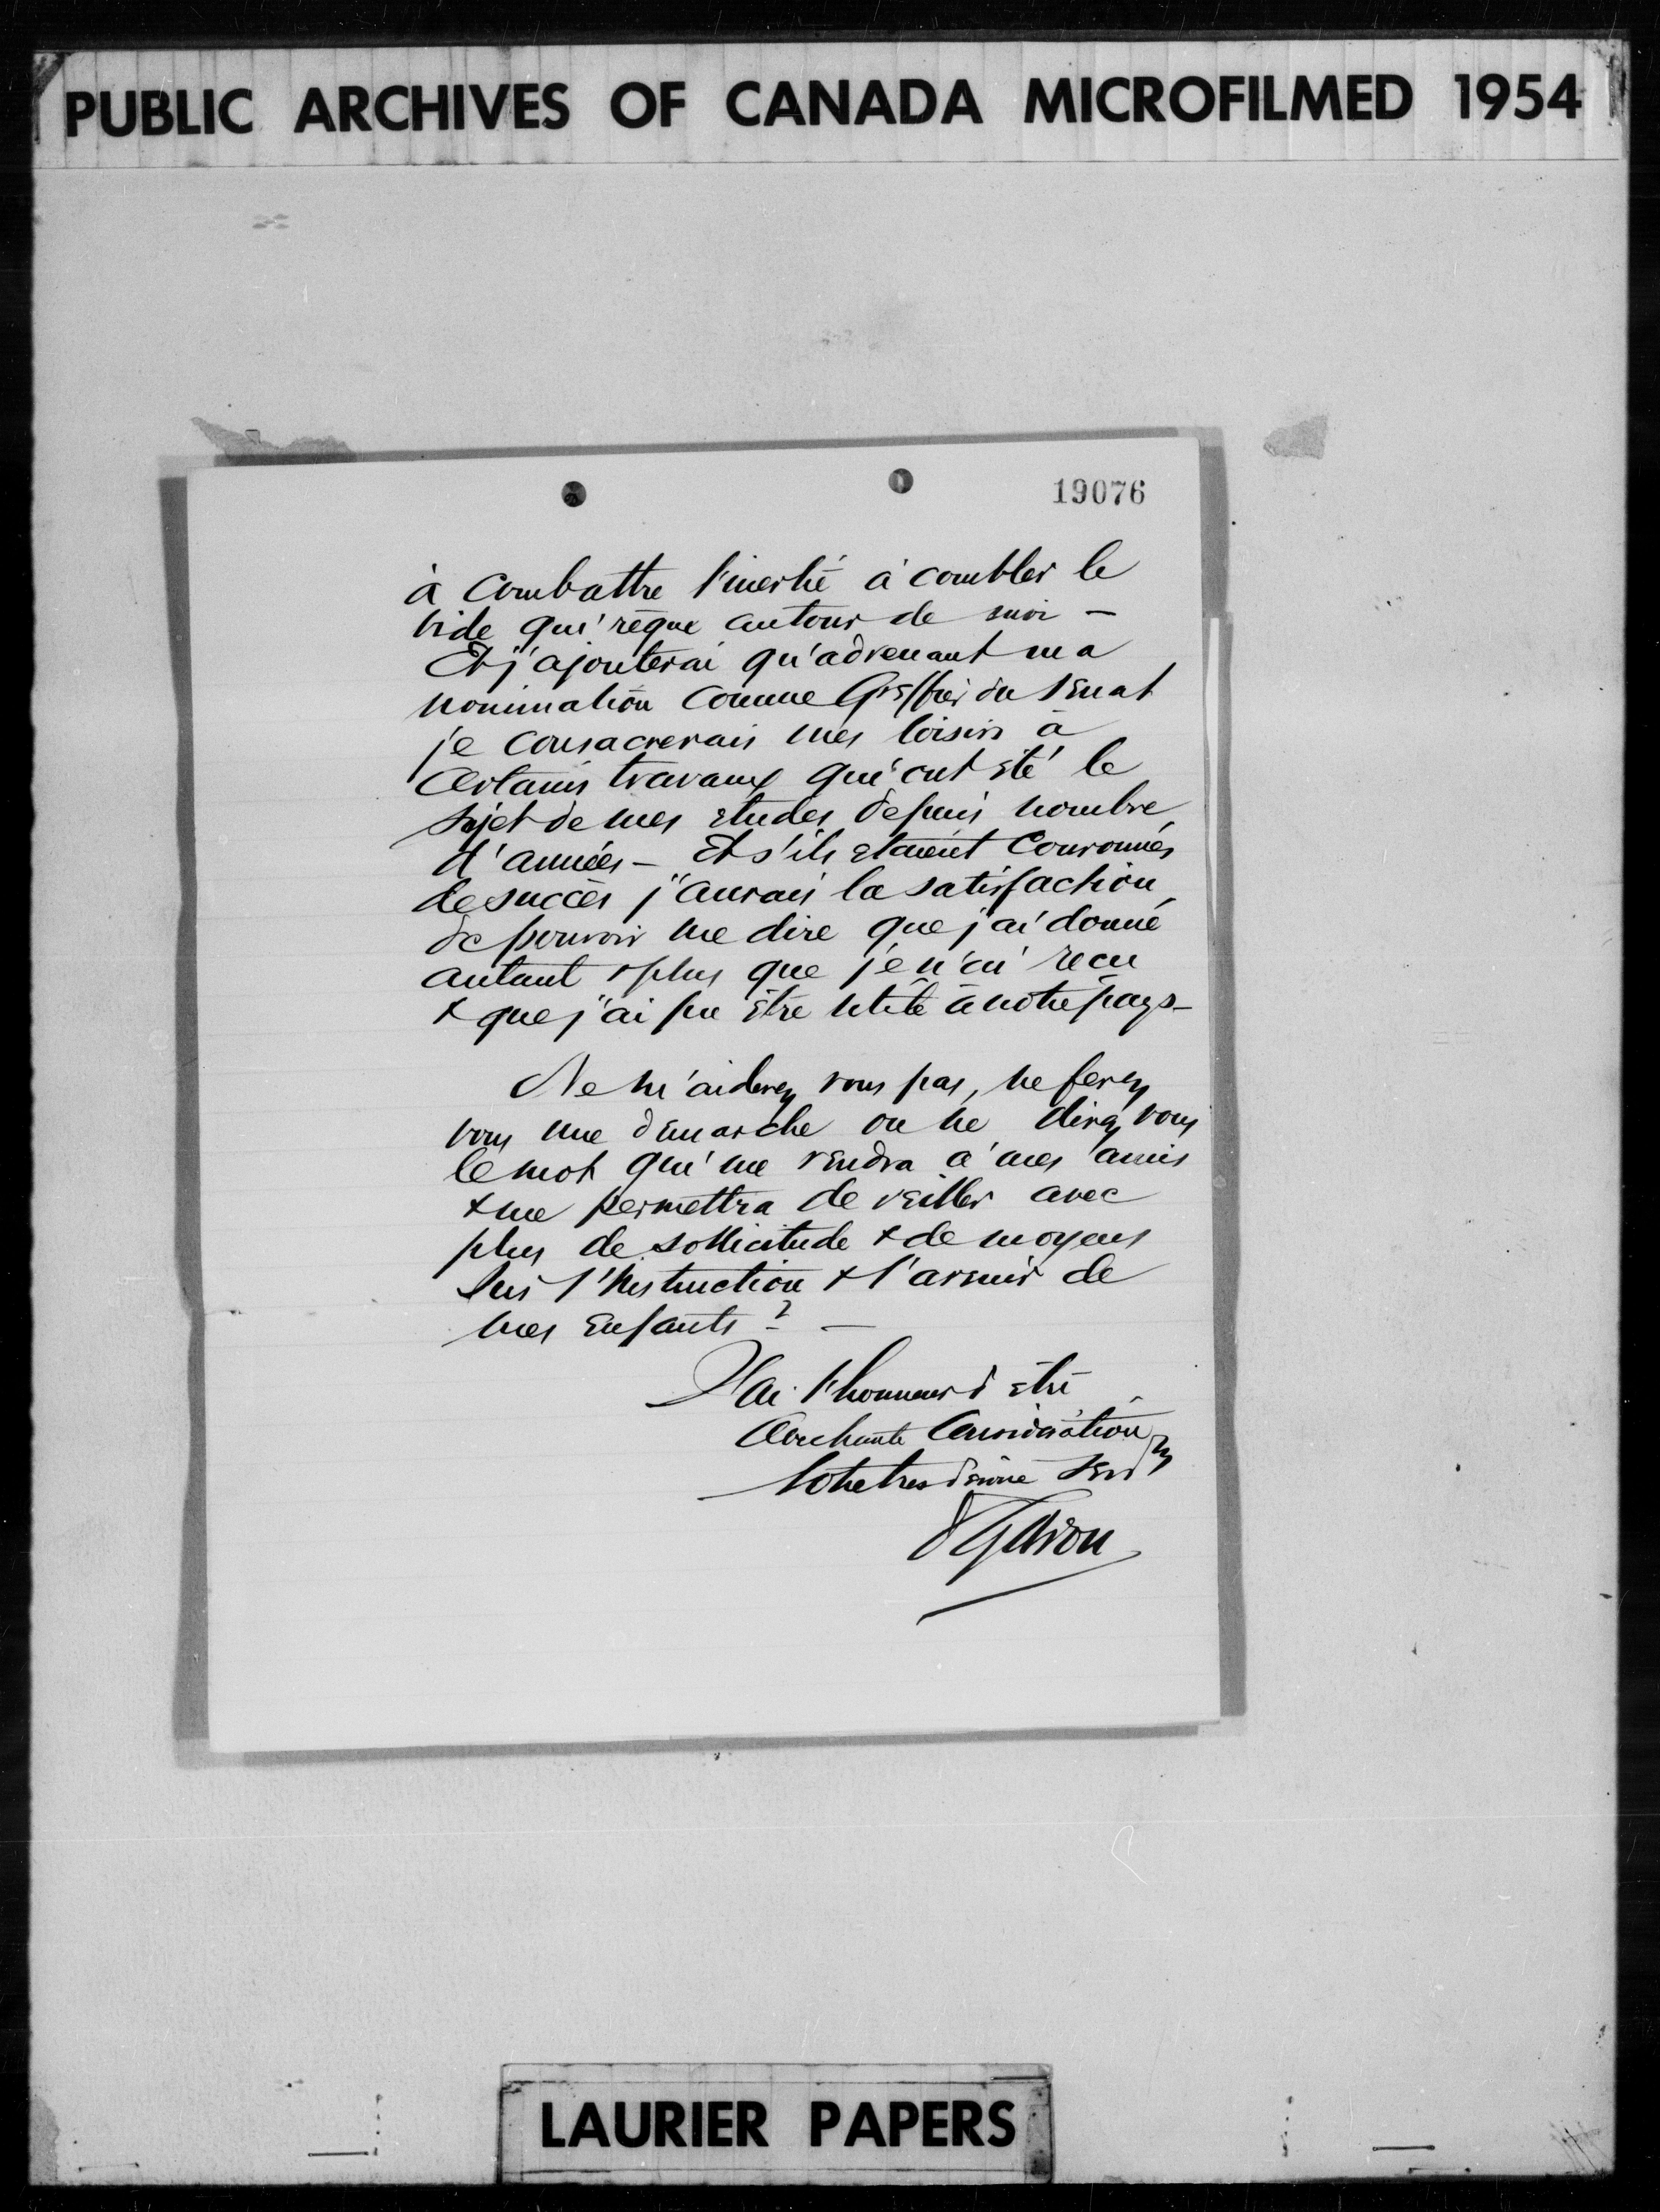 PUBLIC ARCHIVES OF CANADA MICROFILMED 1954
19076
à combattre l'inertie à combler le
vide qui règne autour de moi –
Et j'ajouterai qu'advenant ma
nomination comme Greffier du Senat
je consacrerais mes loisirs à
certains travaux qui ont été le
sujet de mes etudes depuis nombre
d'années – Et s'ils etaient couronnés
de succès j'aurais la satisfaction
de pouvoir me dire que j'ai donné
autant & plus que je n'ai recu
& que j'ai pu être utile à notre pays –
Ne m'aiderez vous pas, ne ferez
vous une demarche ou ne direz vous
le mot qui me rendra à mes amis
& me permettra de veiller avec
plus de sollicitude & de moyens
sur l'instruction & l'avenir de
mes enfants ? –
J'ai l'honneur d'être
consideration
Votre tres devoué serv
LAURIER PAPERS